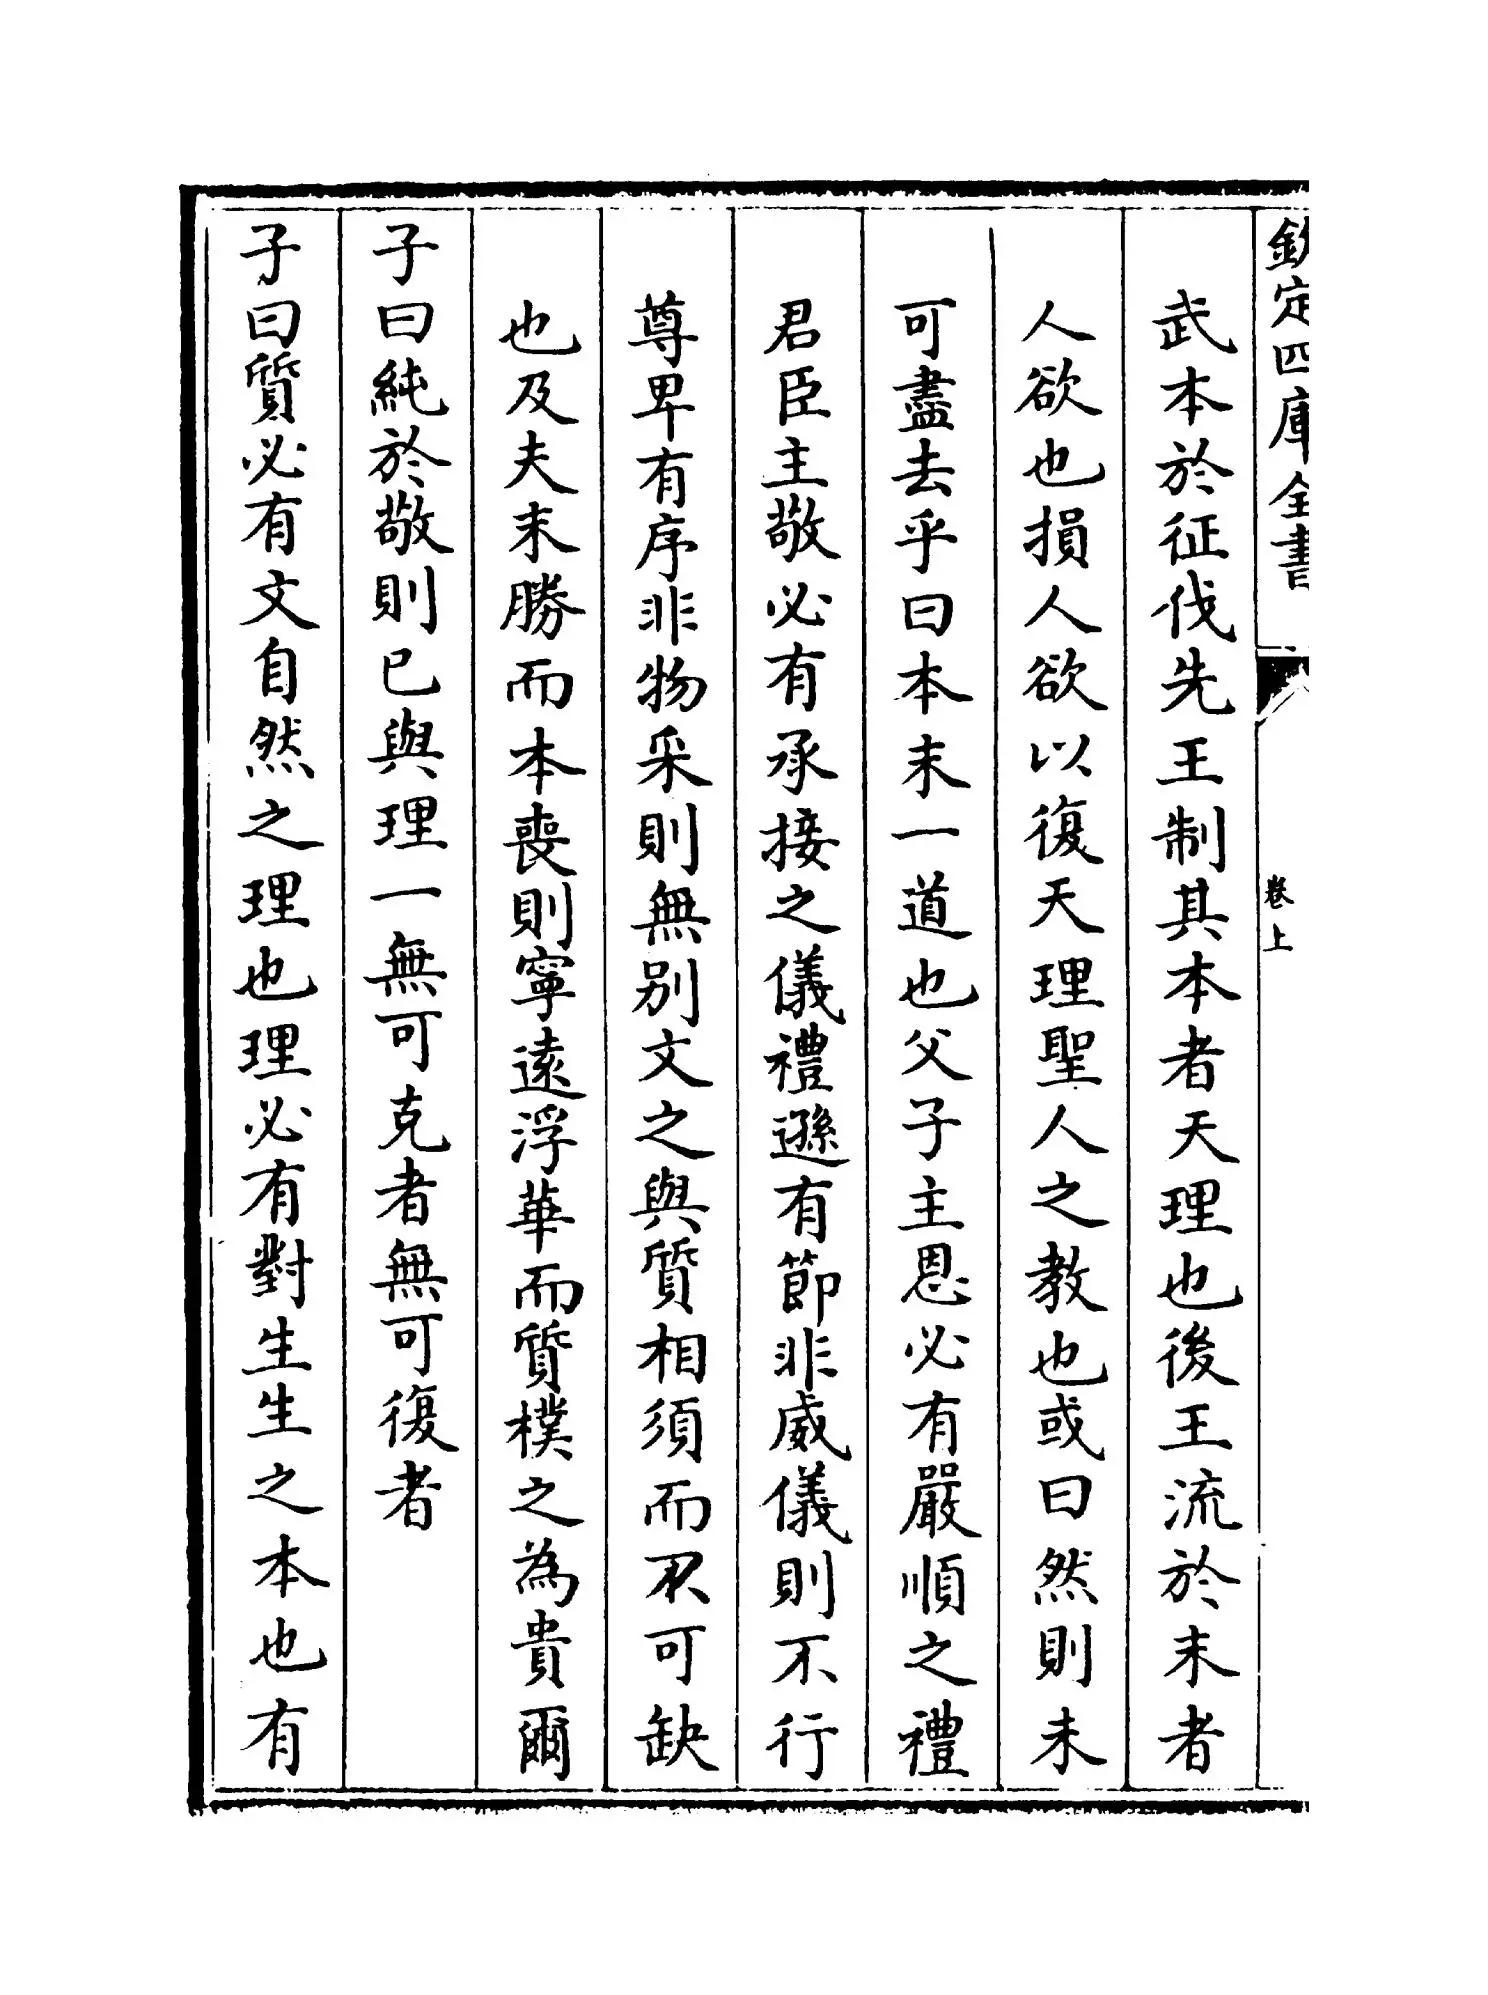 欽定四庫全書
卷上
武本於征伐先王制其本者天理也後王流於末者
人欲也損人欲以復天理聖人之教也或曰然則未
可盡去乎曰本末一道也父子主恩必有嚴順之禮
君臣主敬必有承接之儀禮遜有節非威儀則不行
尊卑有序非物采則無别文之與質相須而不可缺
也及夫末勝而本喪則寧遠浮華而質樸之為貴爾
子曰純於敬則已與理一無可克者無可復者
子曰質必有文自然之理也理必有對生生之本也有